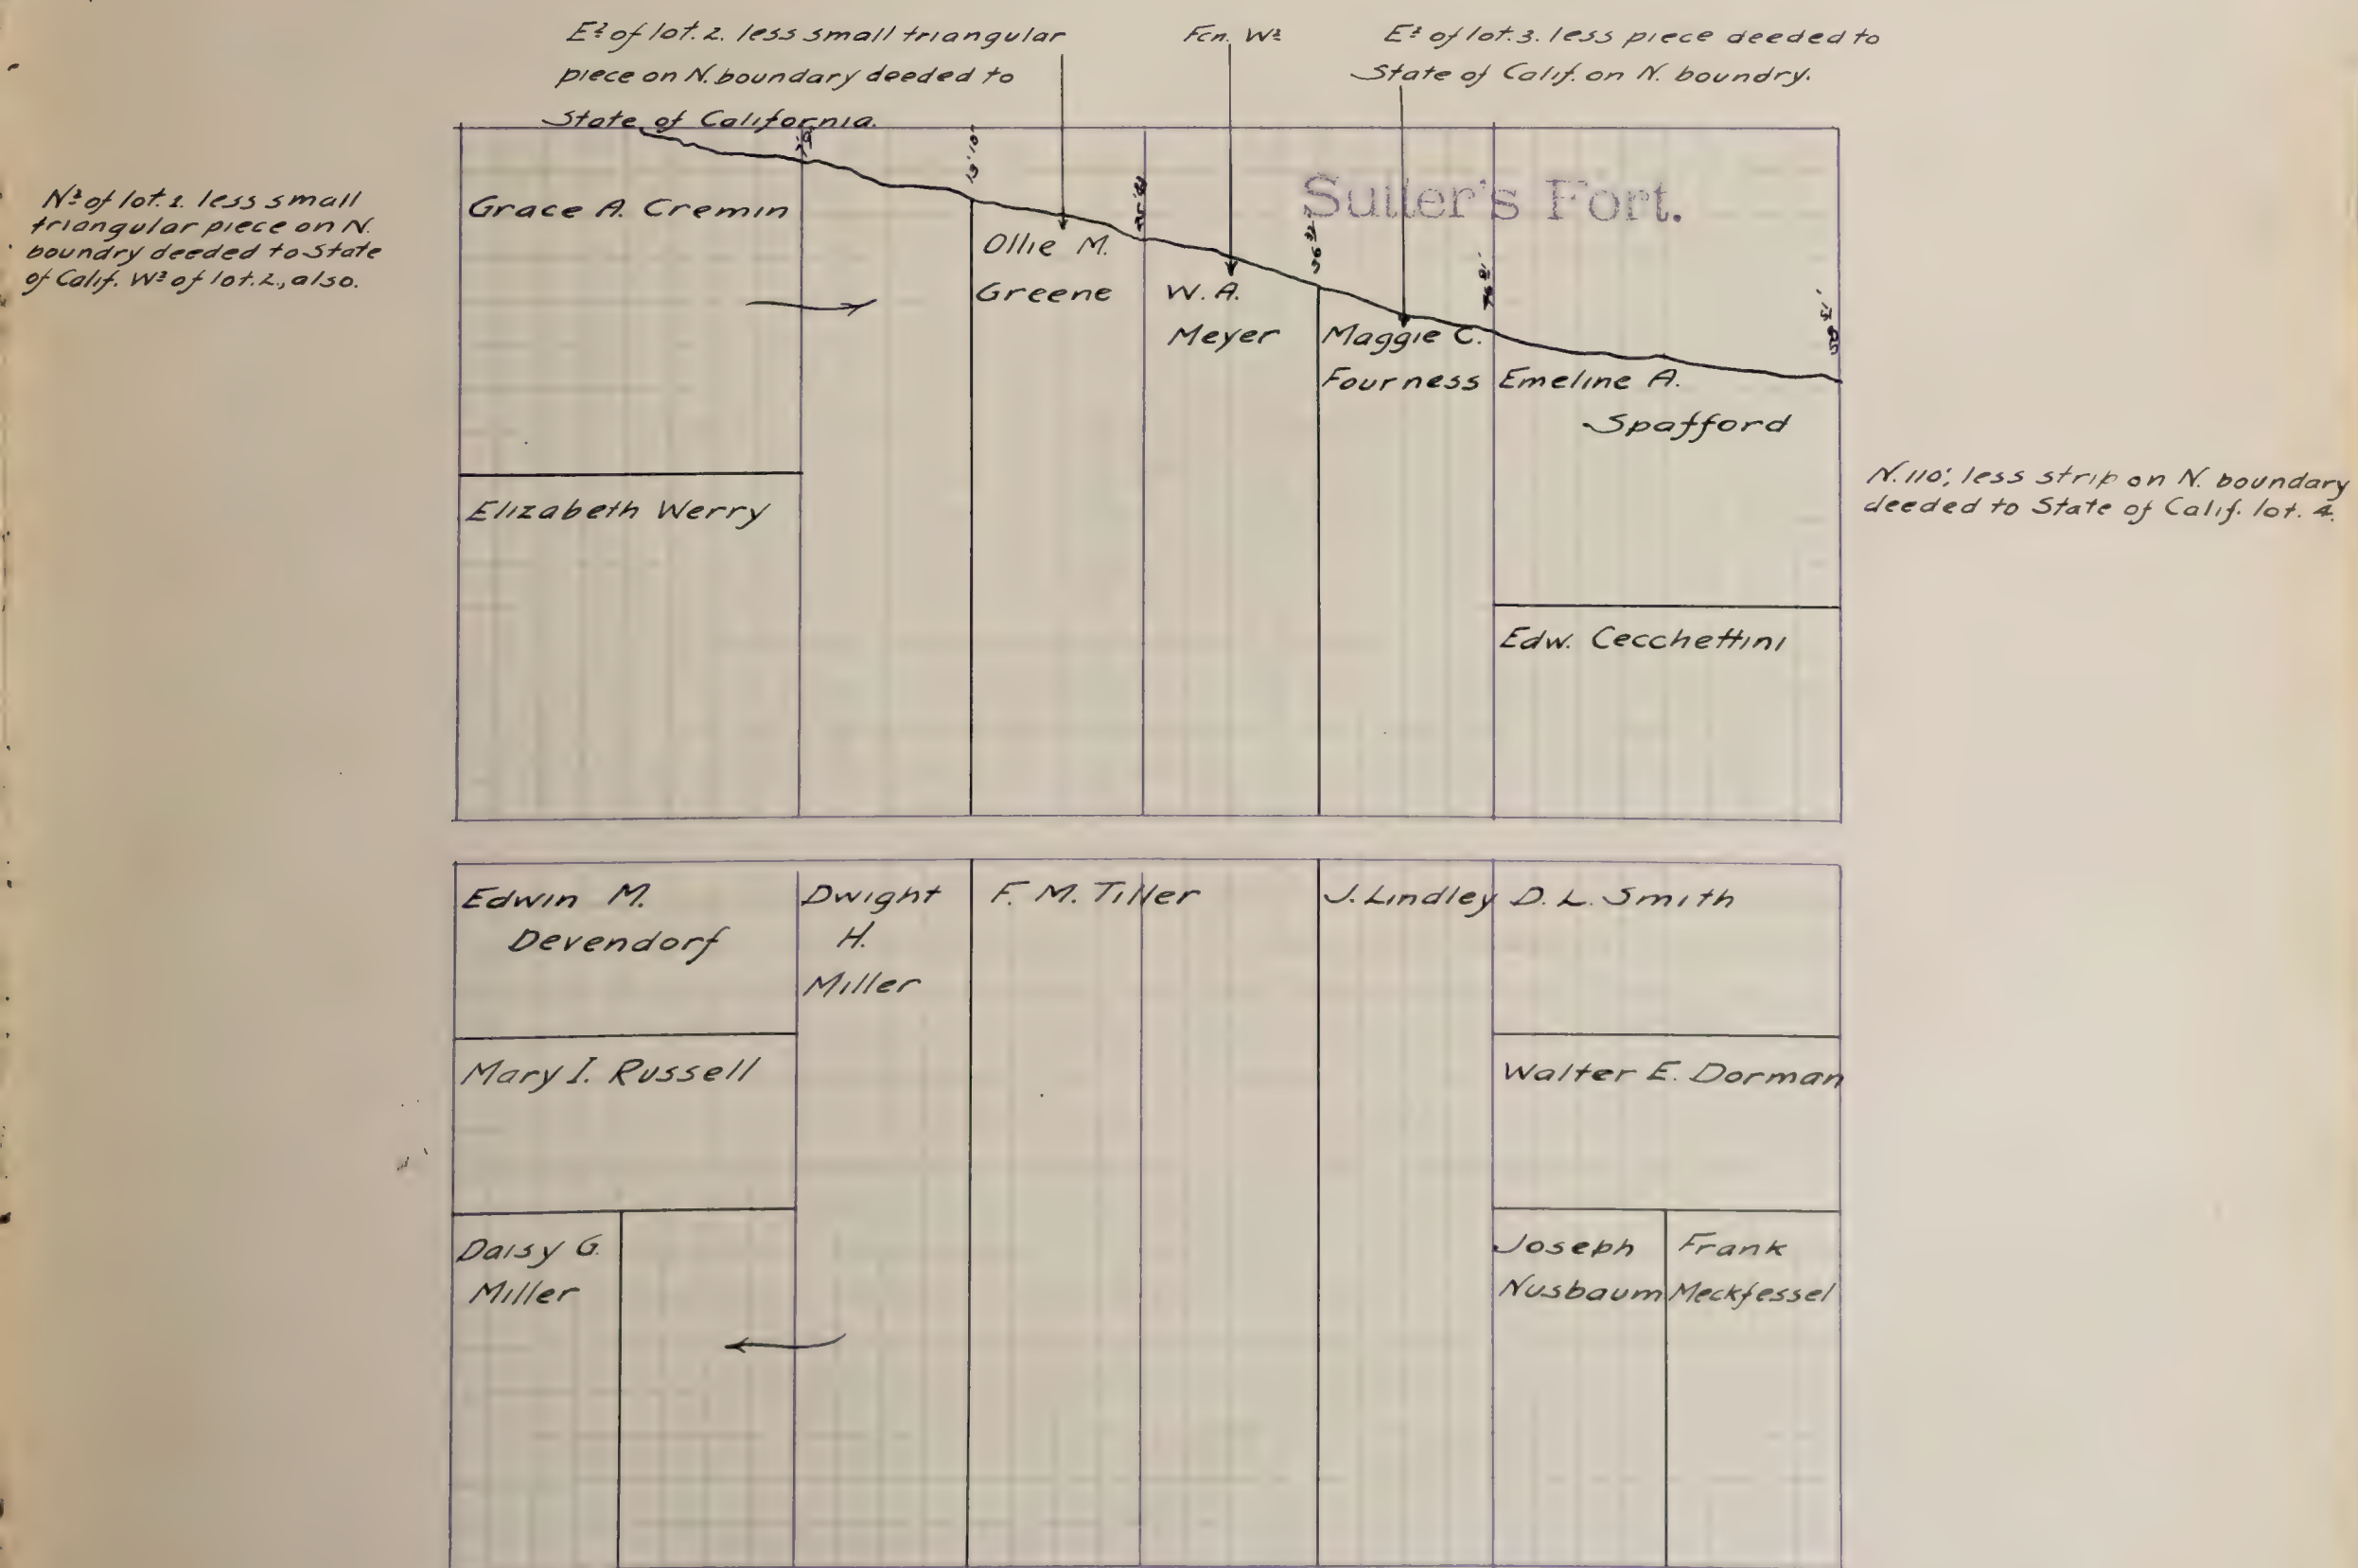 E½ of lot. 2. less small triangular
piece on N. boundary deeded to
State of California.
Fcn. W½
E½ of lot. 3. less piece deeded to
State of Calif. on N. boundry.
N½ of lot. 1. less small
triangular piece on N.
boundry deeded to State
of Calif. W½ of lot. 2., also.
Sutter's Fort.
Grace A. Cremin
Ollie M.
Greene
W. A.
Meyer
Maggie C.
Fourness
Emeline A.
Spafford
N. 110', less strip on N. boundary
deeded to State of Calif. lot. 4.
Elizabeth Werry
Edw. Cecchettini
Edwin M.
Devendorf
Dwight
H.
Miller
F. M. Tiller
J. Lindley
D. L. Smith
Mary I. Russell
Walter E. Dorman
Daisy G.
Miller
Joseph
Nusbaum
Frank
Meckfessel